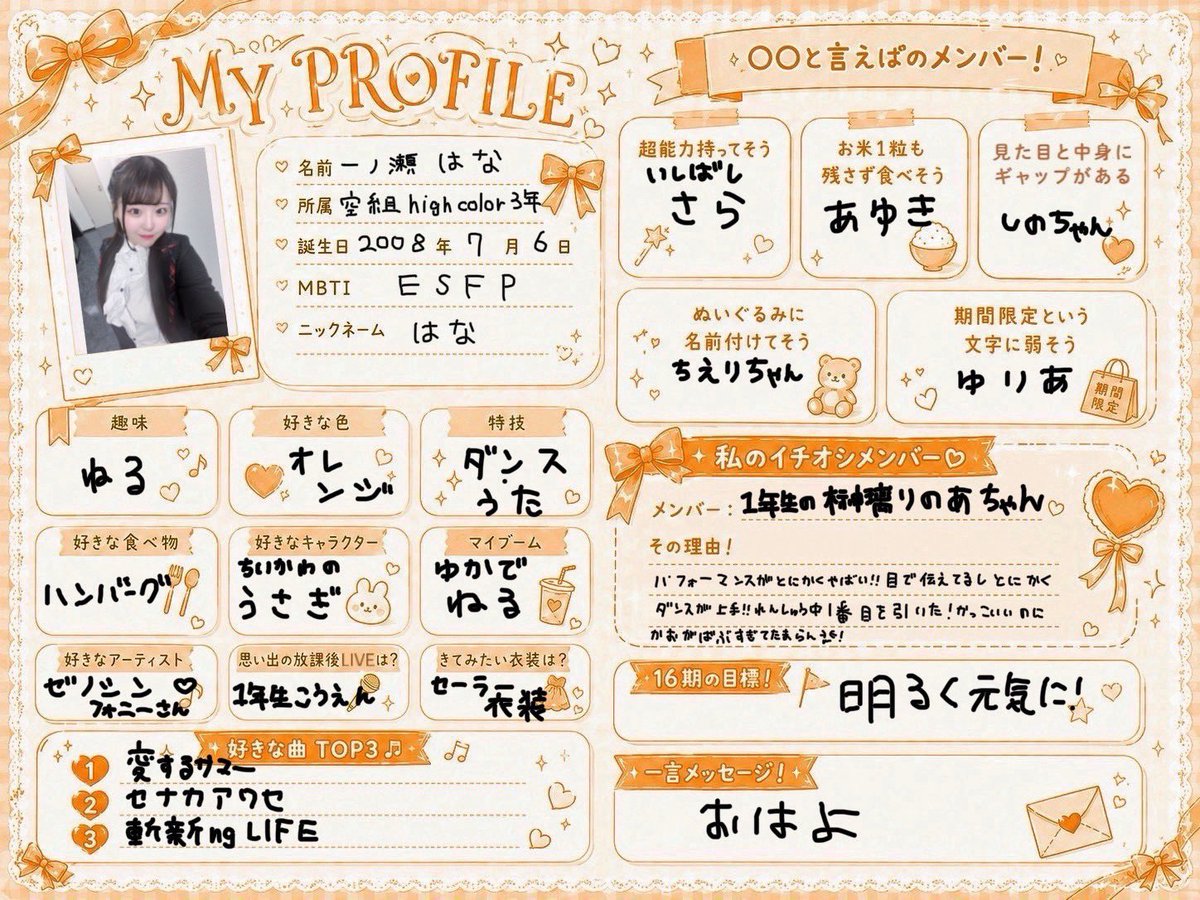 MY PROFILE
名前 一ノ瀬 はな
所属 空組 high color 3年
誕生日 2008年 7月 6日
MBTI ESFP
ニックネーム はな
趣味
ねる
好きな色
オレ
ンジ
特技
ダンス
うた
好きな食べ物
ハンバーグ
好きなキャラクター
ちいかわの
うさぎ
マイブーム
ゆかで
ねる
好きなアーティスト
ゼノシン
フォニーさん
思い出の放課後LIVEは?
1年生こうえん
きてみたい衣装は?
セーラー
衣装
好きな曲 TOP3
1 変するサマー
2 セナカアワセ
3 斬新ng LIFE
〇〇と言えばのメンバー!
超能力持ってそう
いしばし
さら
お米1粒も
残さず食べそう
あゆき
見た目と中身に
ギャップがある
しのちゃん
ぬいぐるみに
名前付けてそう
ちえりちゃん
期間限定という
文字に弱そう
ゆりあ
期間
限定
私のイチオシメンバー♡
メンバー: 1年生の榊璃りのあちゃん
その理由!
パフォーマンスがとにかくやばい!!目で伝えてるしとにかく
ダンスが上手!!れんしゅう中1番目を引いた!かっこいいのに
かおがばぶすぎてたまらん
16期の目標!
明るく元気に!
一言メッセージ!
おはよ